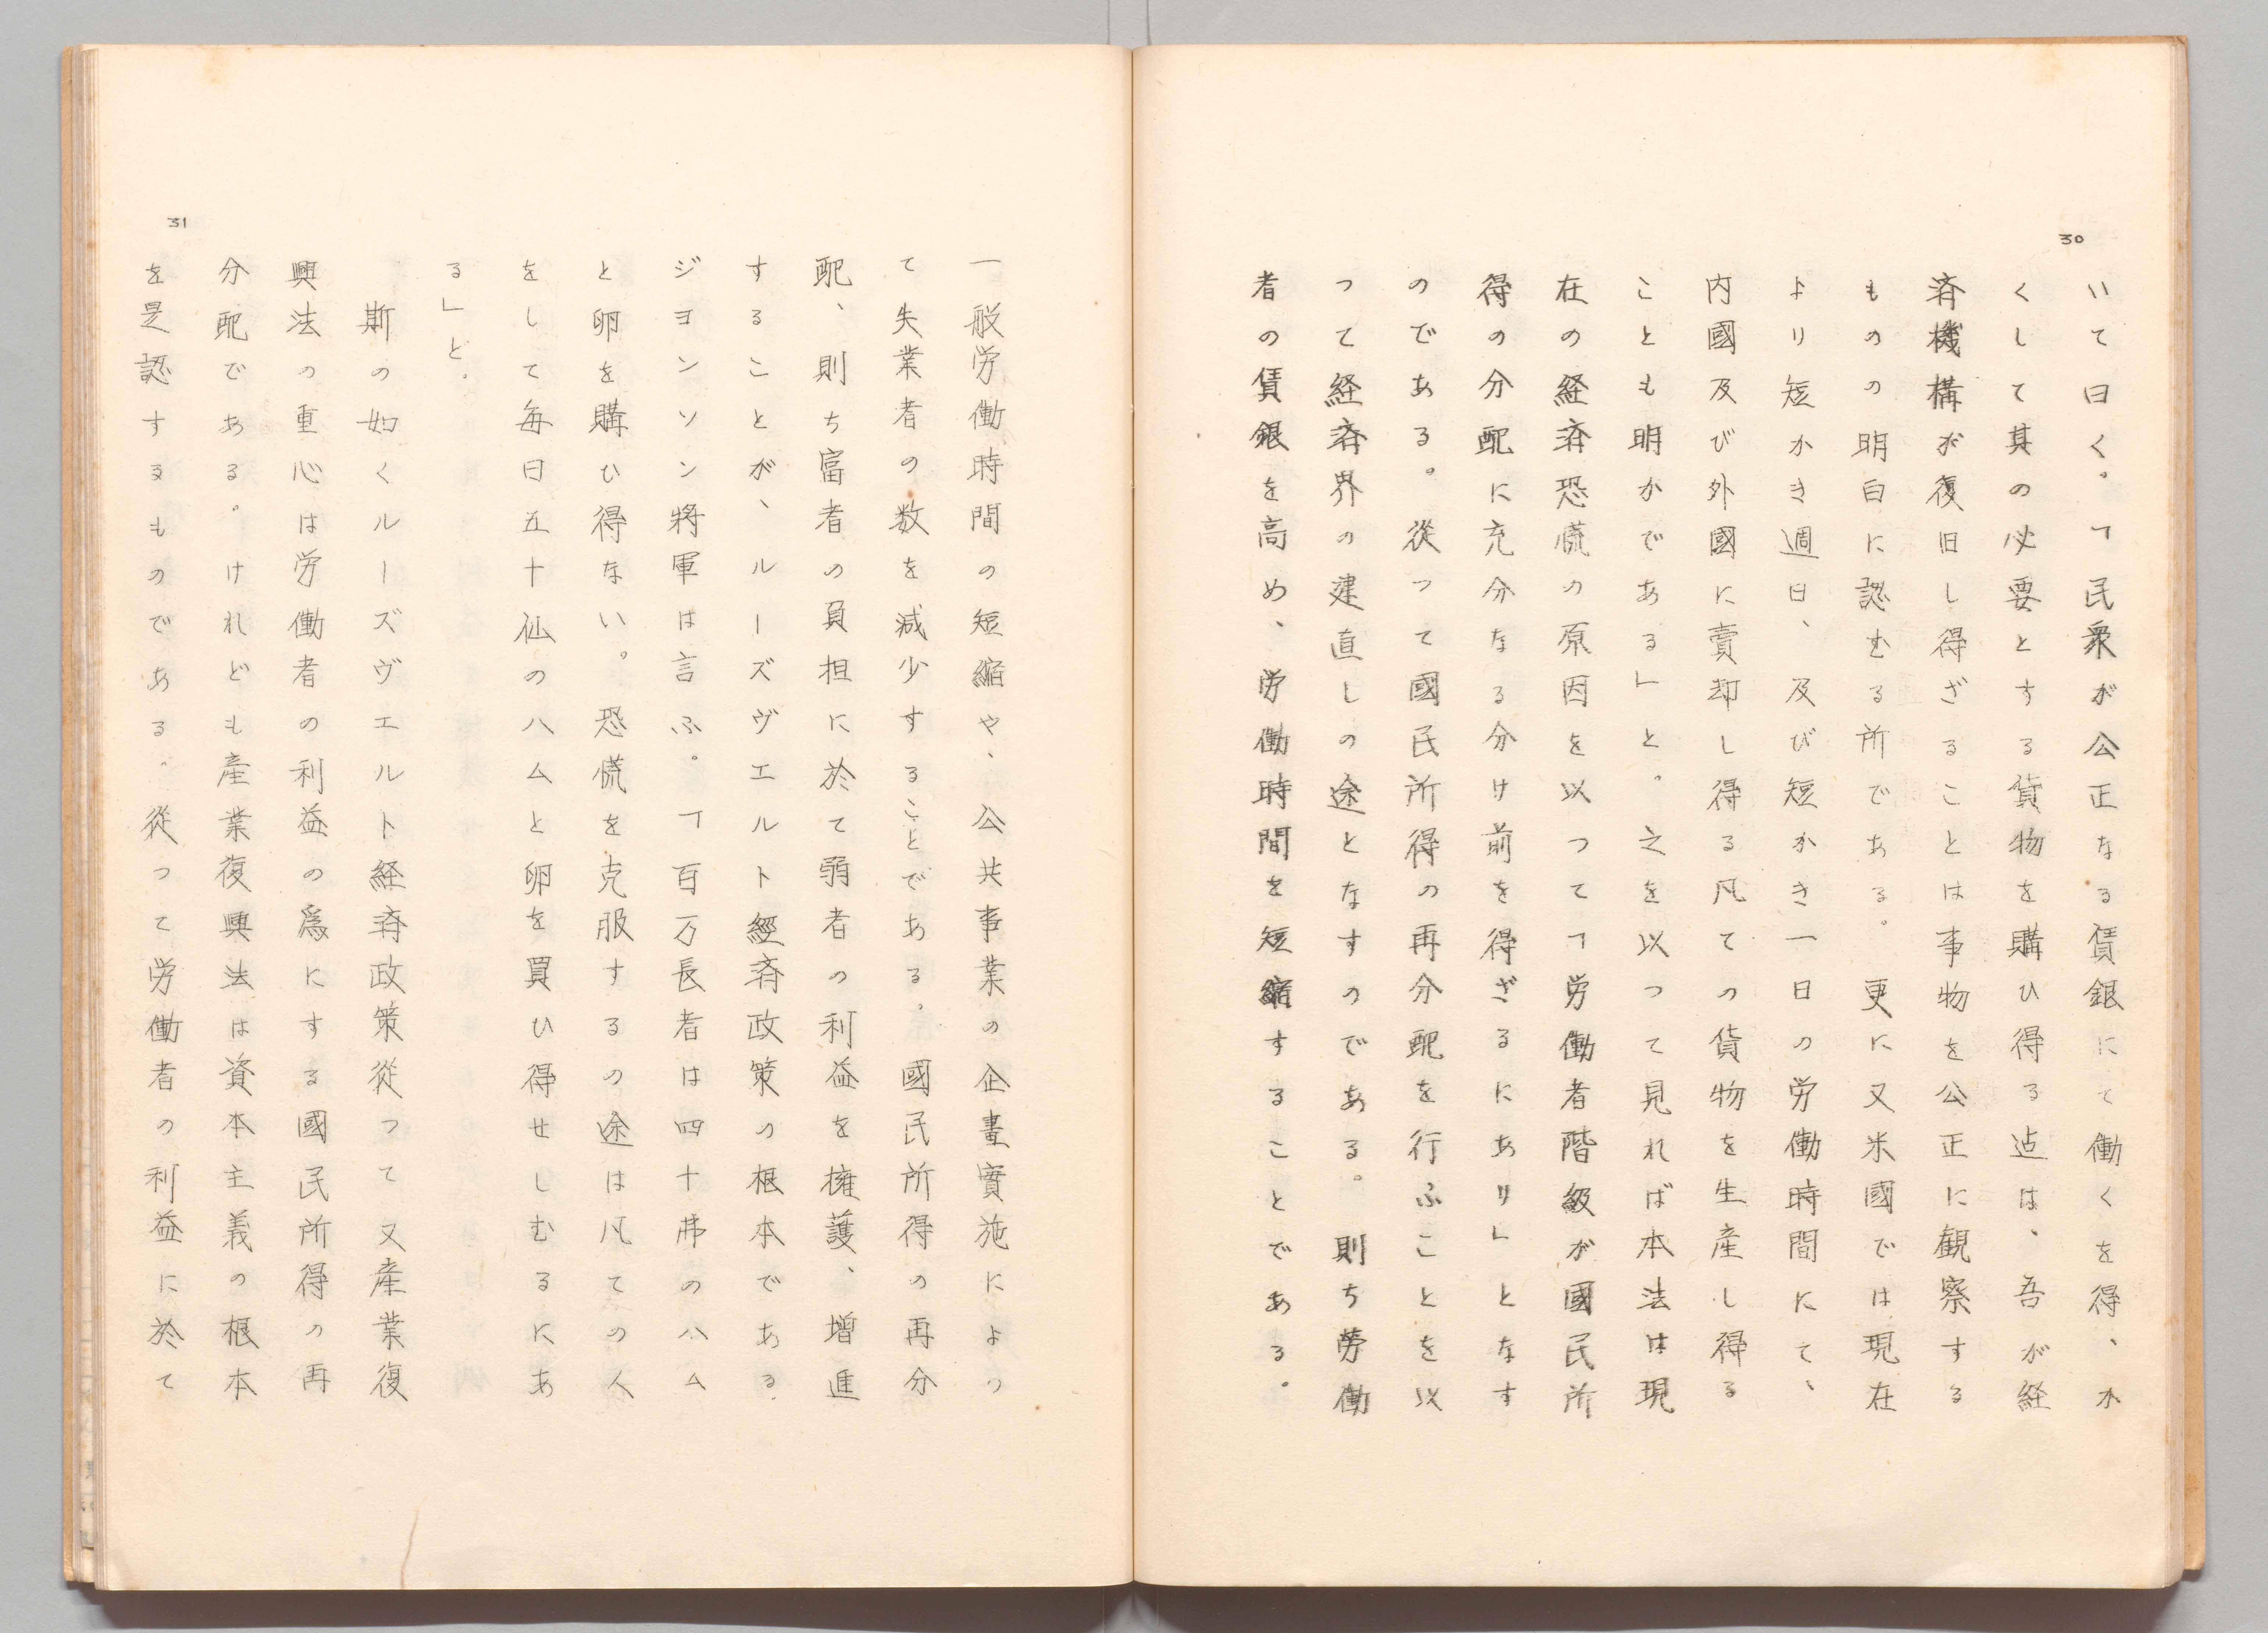 30
いて曰く。「民衆が公正なる賃銀にて働くを得、か
くして其の必要とする貨物を購ひ得る迠は、吾が経
済機構が復旧し得ざることは事物を公正に観察する
ものの明白に認むる所である。更に又米國では現在
より短かき週日、及び短かき一日の労働時間にて、
内國及び外國に賣却し得る凡ての貨物を生産し得る
ことも明かである」と。之を以つて見れば本法は現
在の経済恐慌の原因を以つて「労働者階級が國民所
得の分配に充分なる分け前を得ざるにあり」となす
のである。從つて國民所得の再分配を行ふことを以
つて経済界の建直しの途となすのである。則ち勞働
者の賃銀を高め、労働時間を短縮することである。
31
一般労働時間の短縮や、公共事業の企畫實施によつ
て失業者の数を減少することである。國民所得の再分
配、則ち富者の負担に於て弱者の利益を擁護、増進
することが、ルーズヴエルト經済政策の根本である.
ジヨンソン將軍は言ふ。「百万長者は四十弗のハム
と卵を購ひ得ない。恐慌を克服するの途は凡ての人
をして毎日五十仙のハムと卵を買ひ得せしむるにあ
る」と.
斯の如くルーズヴエルト経済政策從つて又産業復
興法の重心は労働者の利益の爲にする國民所得の再
分配である。けれども産業復興法は資本主義の根本
を是認するものである.從つて労働者の利益に於て